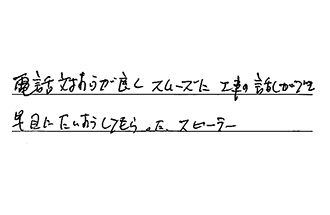 電話対おうが良く スムーズに 工事の話しができ
早目にたいおうしてもらった、スピーラー